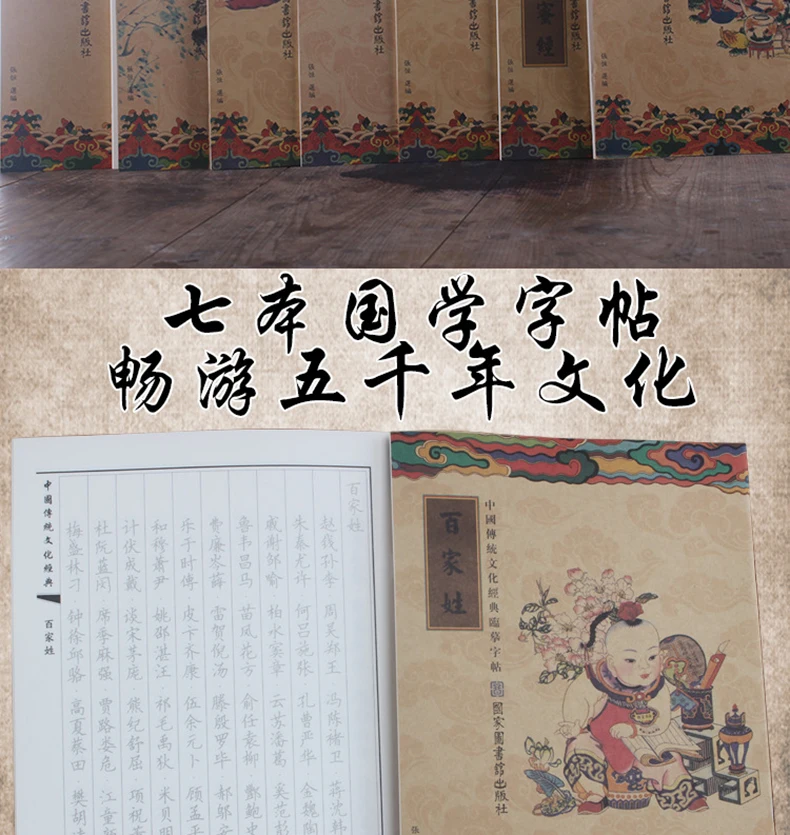 書舘出版社
書舘出版社
書舘出版社
書舘出版社
書舘出版社
出版社
書舘出版社
七本国学字帖
畅游五千年文化
百家姓
赵钱孙李 周吴郑王 冯陈褚卫 蒋沈韩
朱秦尤许 何吕施张 孔曹严华 金魏陶
戚谢邹喻 柏水窦章 云苏潘葛 奚范彭
鲁韦昌马 苗凤花方 俞任袁柳 酆鲍史
费廉岑薛 雷贺倪汤 滕殷罗毕 郝邬安
乐于时傅 皮卞齐康 伍余元卜 顾孟平
和穆萧尹 姚邵湛汪 祁毛禹狄 米贝明
计伏成戴 谈宋茅庞 熊纪舒屈 项
杜阮蓝闵 席季麻强 贾路娄危 江童
梅盛林刁 钟徐邱骆 高夏蔡田 樊胡
中國傳統文化經典
百家姓
百家姓
中國傳統文化經典臨摹字帖
國家圖書舘出版社